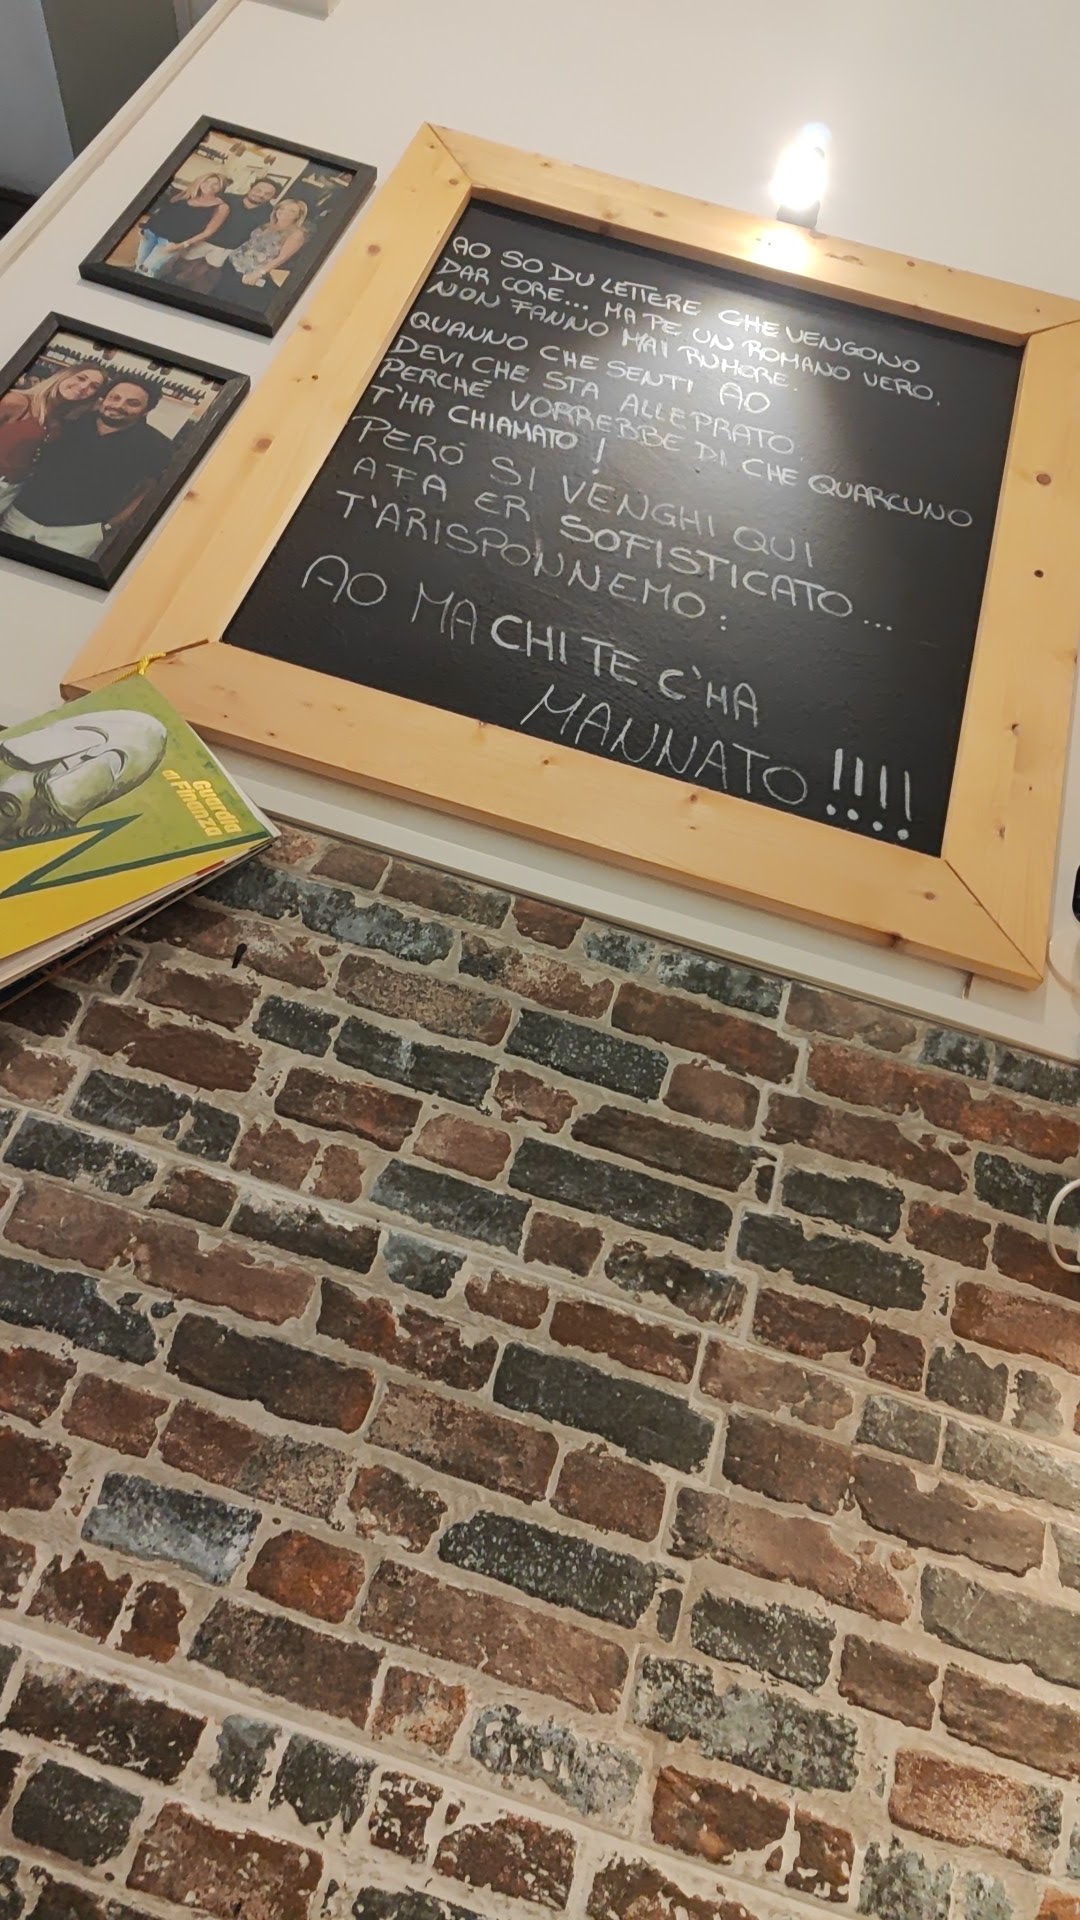 AO SO DU LETTERE CHE VENGONO
DAR CORE... MA PE UN ROMANO VERO.
NON FANNO MAI RUMORE.
QUANNO CHE SENTI AO
DEVI CHE STA ALLEPRATO.
PERCHÉ VORREBBE DI CHE QUARCUNO
T'HA CHIAMATO !
PERÓ SI VENGHI QUI
A FA ER SOFISTICATO...
T'ARISPONNEMO:
AO MA CHI TE C'HA
MANNATO !!!!
Guardia
di Finanza